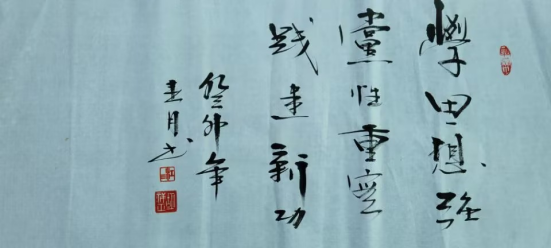 學思想强
黨性重實
践建新功
癸卯年
春月书